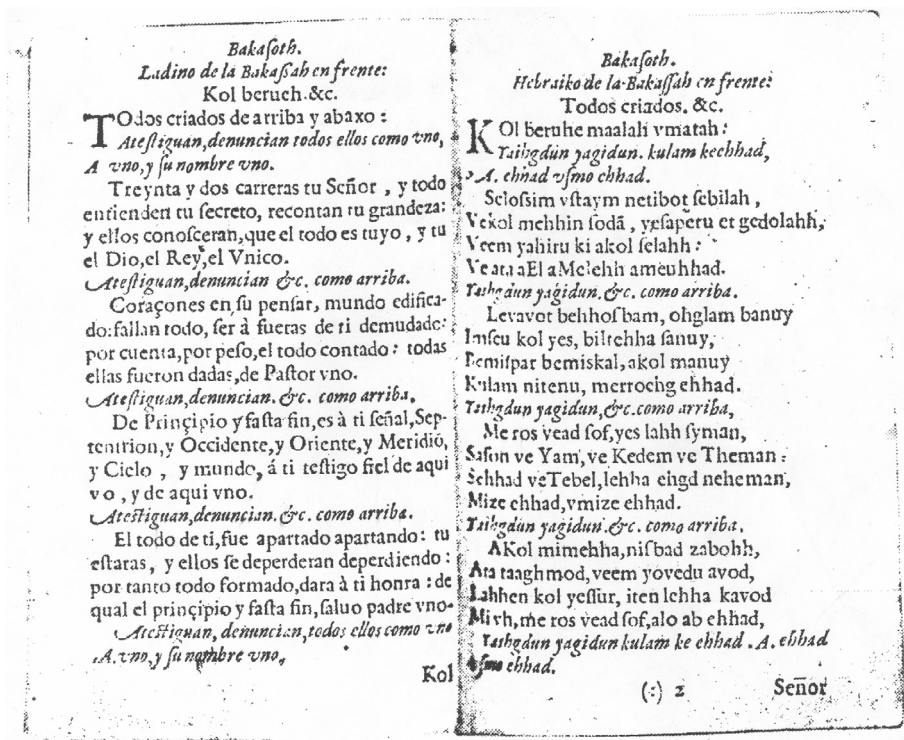 Bakaſoth.
Ladino de la Bakaſſah en frente:
Kol beruch. &c.
TOdos criados de arriba y abaxo :
Ateſtiguan, denuncian todos ellos como vno,
A vno, y ſu nombre vno.
Treynta y dos carreras tu Señor , y todo
entienden tu ſecreto, recontan tu grandeza:
y ellos conoſceran, que el todo es tuyo , y tu
el Dio, el Rey, el Vnico.
Ateſtiguan, denuncian &c. como arriba.
Coraçones en ſu penſar, mundo edifica-
do: fallan todo, ſer à fueras de ti demudado:
por cuenta, por peſo, el todo contado : todas
ellas fueron dadas, de Paſtor vno.
Ateſtiguan, denuncian. &c. como arriba.
De Prinçipio y faſta fin, es à ti ſeñal, Sep-
tentrion, y Occidente, y Oriente, y Meridiõ,
y Cielo , y mundo, á ti teſtigo fiel de aqui
vo , y de aqui vno.
Ateſtiguan, denuncian. &c. como arriba.
El todo de ti, fue apartado apartando: tu
eſtaras, y ellos ſe deperderan deperdiendo :
por tanto todo formado, dara à ti honra : de
qual el prinçipio y faſta fin, ſaluo padre vno.
Ateſtiguan, denuncian, todos ellos como vno
.A. vno, y ſu nombre vno,
Kol
Bakaſoth.
Hebraiko de la Bakaſſah en frente:
Todos criados. &c.
KOl beruhe maalah vmatah :
Yaihgdun yagidun. kulam kechhad,
A. ehhad vſmo ehhad.
Seloſsim vſtaym netibot ſebilah ,
Vekol mehhin ſodã , yeſaperu et gedolahh,
Veem yahiru ki akol ſelahh :
Veata aEl aMelehh ameuhhad.
Yaihgdun yagidun. &c. como arriba.
Levavot behhoſbam, ohglam banuy
Imſeu kol yes, biltehha ſanuy,
Bemiſpar bemiskal, akol manuy
Kulam nitenu, merrochg ehhad.
Yaihgdun yagidun, &c. como arriba,
Me ros vead ſof, yes lahh ſyman,
Safon ve Yam, ve Kedem ve Theman :
Sehhad veTebel, lehha eihgd neheman,
Mize ehhad, vmize ehhad.
Yaihgdun yagidun. &c. como arriba.
AKol mimehha, niſbad zabohh,
Ata taaghmod, veem yovedu avod,
Lahhen kol yeſſur, iten lehha kavod
me ros vead ſof, alo ab ehhad,
Yaihgdun yagidun kulam ke ehhad . A. ehhad
vſmo ehhad.
(:) 2
Señor